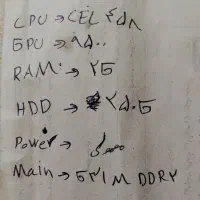 CPU → CEL ۴۵۸
GPU → ۹۵۰۰
RAM: → ۲G
HDD → ۲۵۰G
Power →
Main → G۳۱ M DDR۲